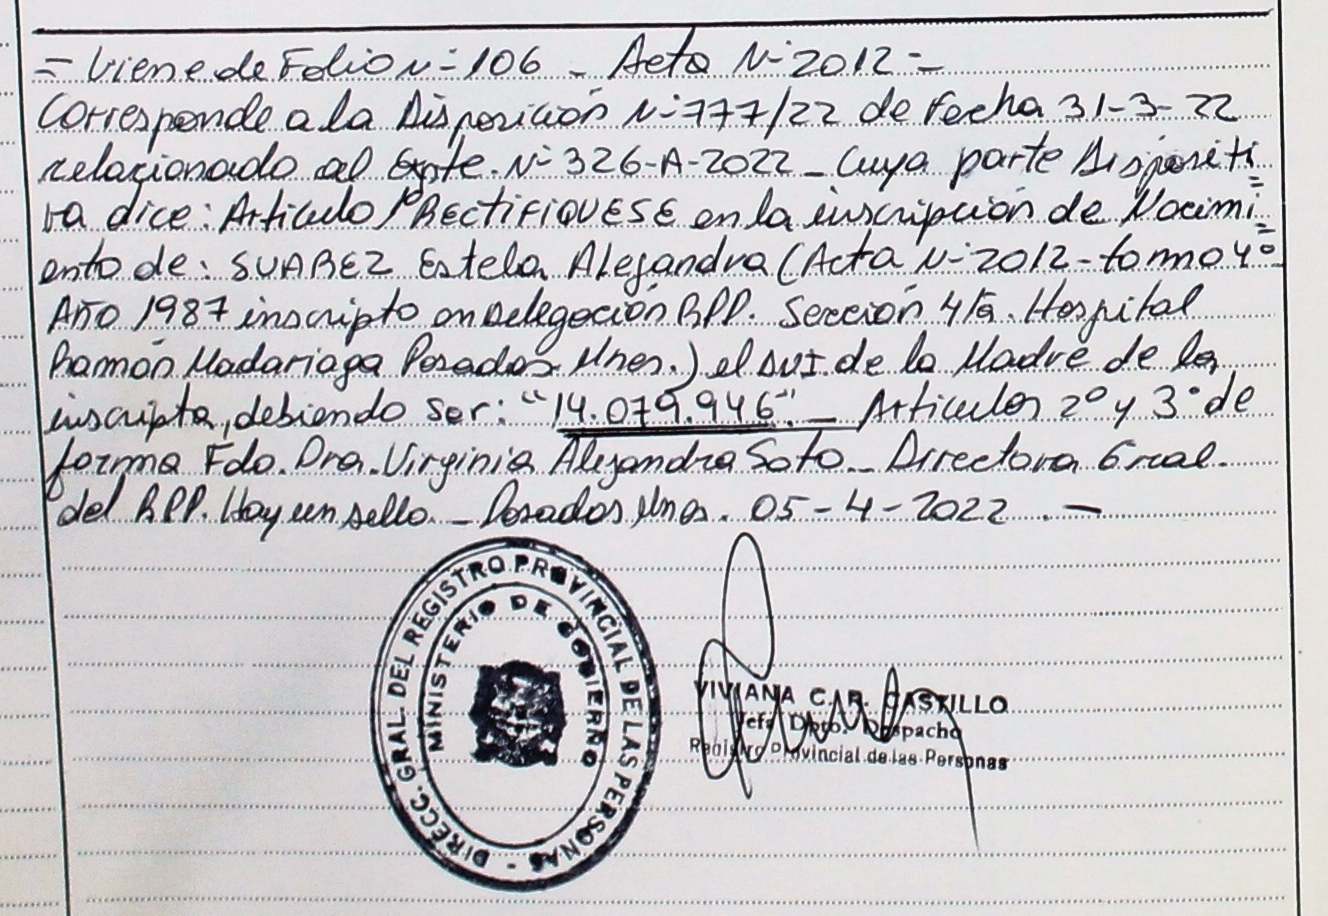 = Viene de Folio N- 106 - Acta N- 2012 -
Corresponde a la Disposición N- 777/22 de Fecha 31-3-22
relacionado al Expte. N- 326-A-2022 - Cuya parte Dispositi=
va dice: Articulo 1º RECTIFIQUESE en la inscripción de Nacimi=
ento de: SUAREZ Estela Alejandra (Acta N- 2012 - tomo 4º
Año 1987 inscripto en Delegación RPP. Sección 4ta. Hospital
Ramón Madariaga Posadas Mnes.) el DNI de la Madre de la
inscripta, debiendo ser: "14.079.946" - Articulos 2º y 3º de
forma Fdo. Dra. Virginia Alejandra Soto - Directora Gral.
del RPP. Hay un sello. - Posadas Mnes. 05-4-2022 . -
DIRECC. GRAL. DEL REGISTRO PROVINCIAL DE LAS PERSONAS -
MINISTERIO DE GOBIERNO
VIVIANA C. R. CASTILLO
Jefa Dpto. Despacho
Registro Provincial de las Personas